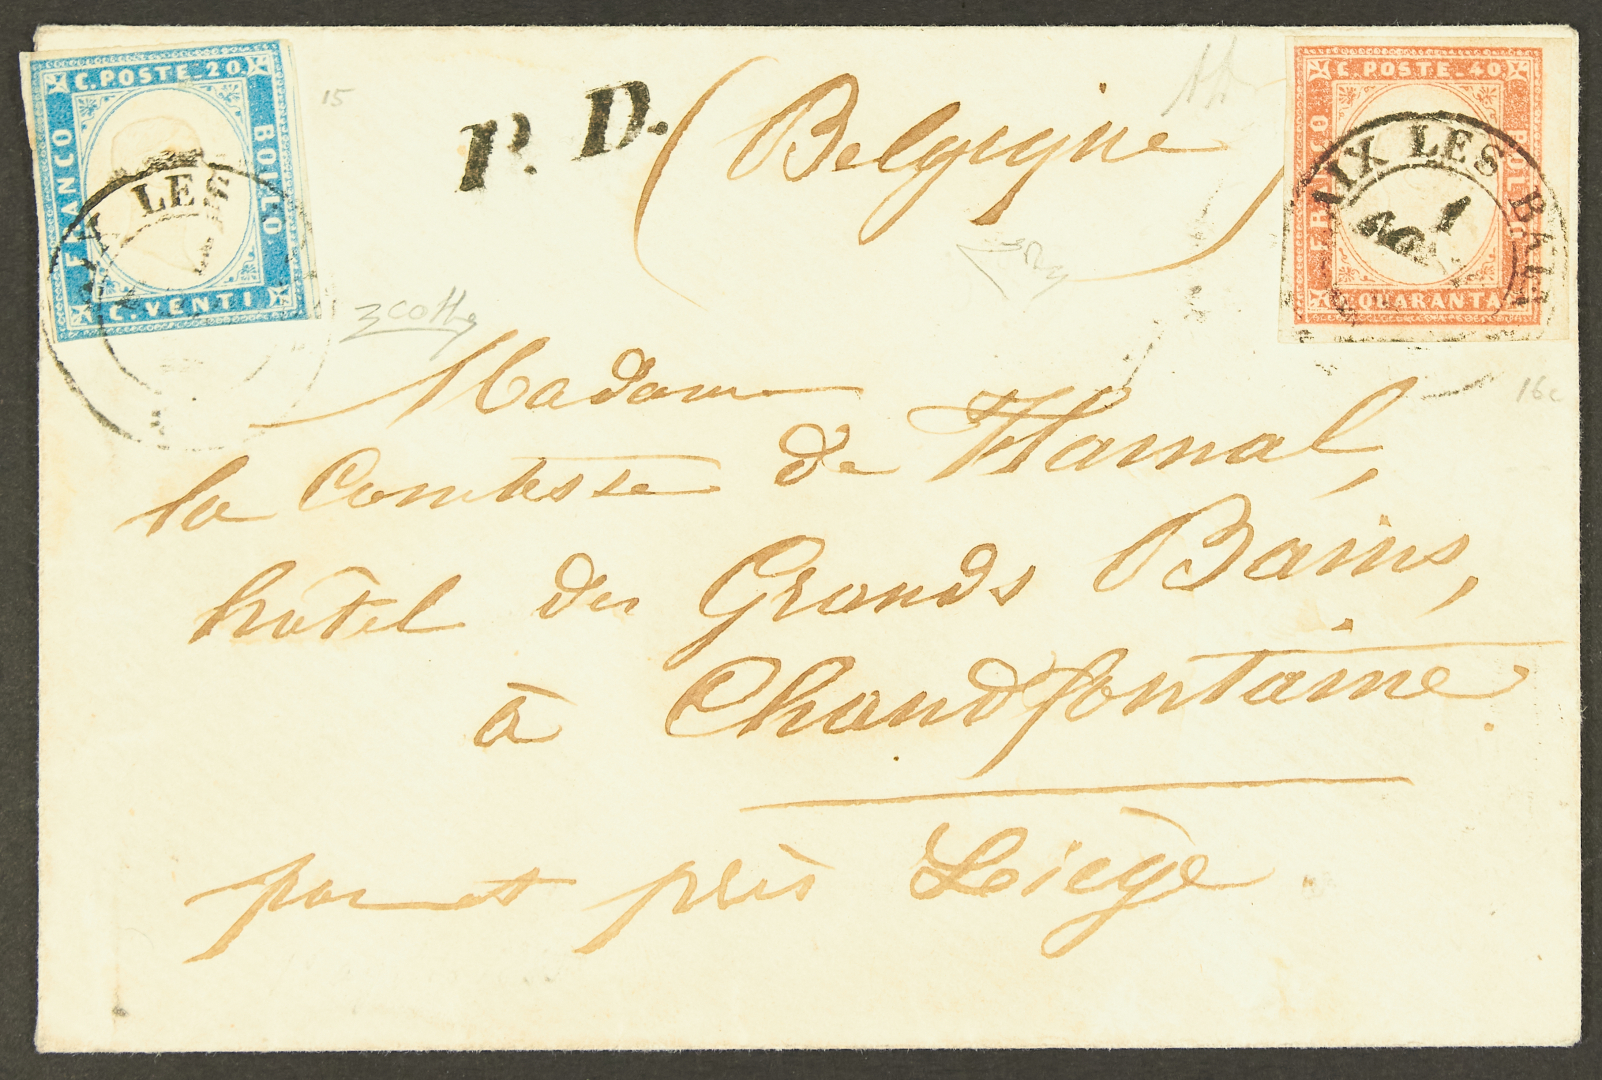 C. POSTE 20.
FRANCO
BOLLO
C. VENTI
AIX LES
15
P. D.
(Belgique)
C. POSTE 40.
FRANCO
BOLLO
C. QUARANTA
AIX LES BAINS
1
AOU
16c
Madame
la Comtesse de Hamal,
hôtel des Grands Bains,
à Chaudfontaine
par et près Liège